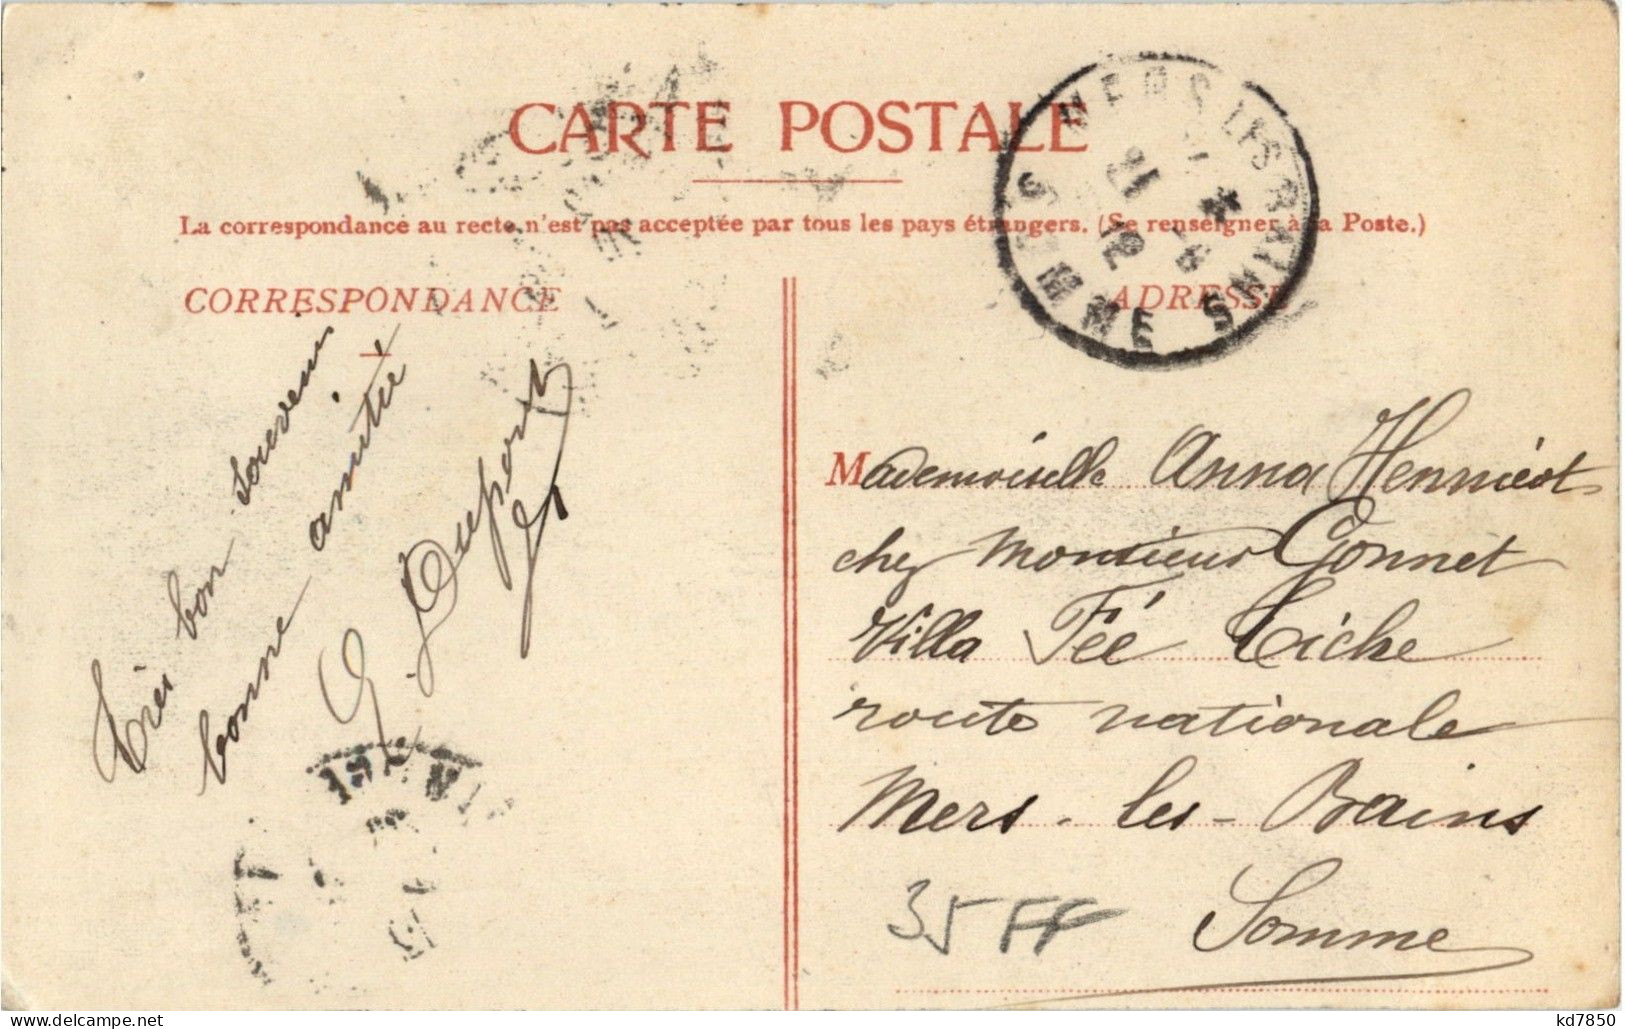 CARTE POSTALE
La correspondance au recto n'est pas acceptée par tous les pays étrangers. (Se renseigner à la Poste.)
CORRESPONDANCE
Très bon souvenir
bonne amitié
G. Duport
ADRESSE
MERS LES BAINS
SOMME
Mademoiselle Anna Henriéot
chez Monsieur Gonnet
Villa Fée Liche
route nationale
Mers-les-Bains
Somme
35 FF
kd7850